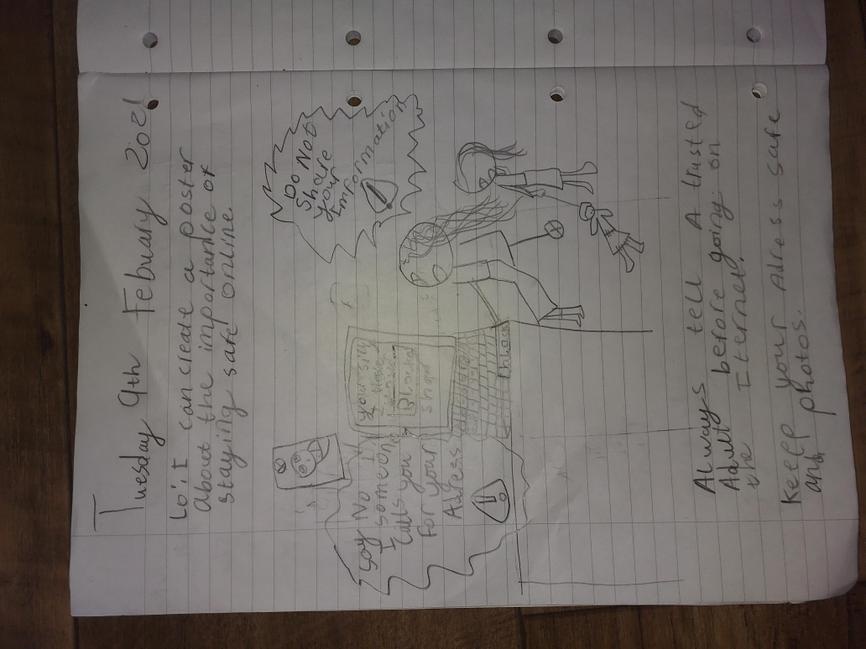 Tuesday 9th Febuary 2021
Lo: I can create a poster
about the importance of
staying safe online.
Do Not
Share
your
Information
!
Say No If
someone
Calls you
For your
Adress
!
Blocked
shop
Always tell A trusted
Adult before going on
the Iternet.
Keeep your Adress safe
and photos.